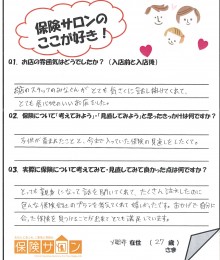 保険サロンの
ここが好き！
Q1. お店の雰囲気はどうでしたか？（入店前と入店後）
お店のスタッフのみなさんが とても気さくに話し掛けてくれて、
とても居心地のいいお店でした。
Q2. 保険について「考えてみよう」・「見直してみよう」と思ったきっかけは何ですか？
子供が産まれたことと、今まで入っていた保険の見直しをしたくて。
Q3. 実際に保険について考えてみて・見直してみて良かった点は何ですか？
とっても親身になって話を聞いてくれて、たくさん
色んな保険会社のプランを教えてくれて嬉しかったです。おかげで自分に
合った保険を見つけることが出来てとても満足しています。
保険サロン
在住
（27 歳）
さま